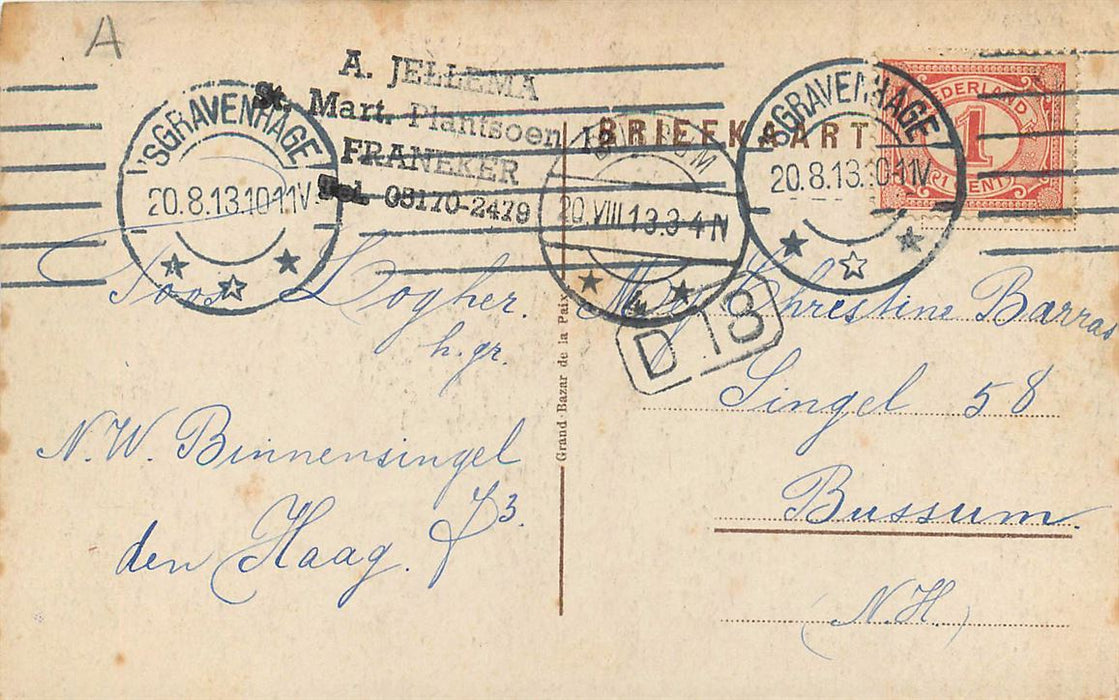 A
A. JELLEMA
St. Mart. Plantsoen
FRANEKER
Tel. 05170-2479
'SGRAVENHAGE
20.8.13.10-11V.
BRIEFKAART
BUSSUM
20.VIII.13.3-4N
4
'SGRAVENHAGE
20.8.13.10-11V.
NEDERLAND
1
CENT
D 13
Toos Logher.
h.gr.
N.W. Binnensingel
den Haag. 73.
Grand Bazar de la Paix
Mej. Christine Barras
Singel 58
Bussum.
(N.H.)